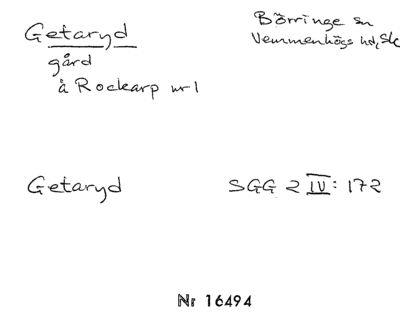 Getaryd
Börringe sn
Vemmenhögs hd, Sk
gård
å Rockarp nr 1
Getaryd
SGG 2 IV: 172
Nr 16494